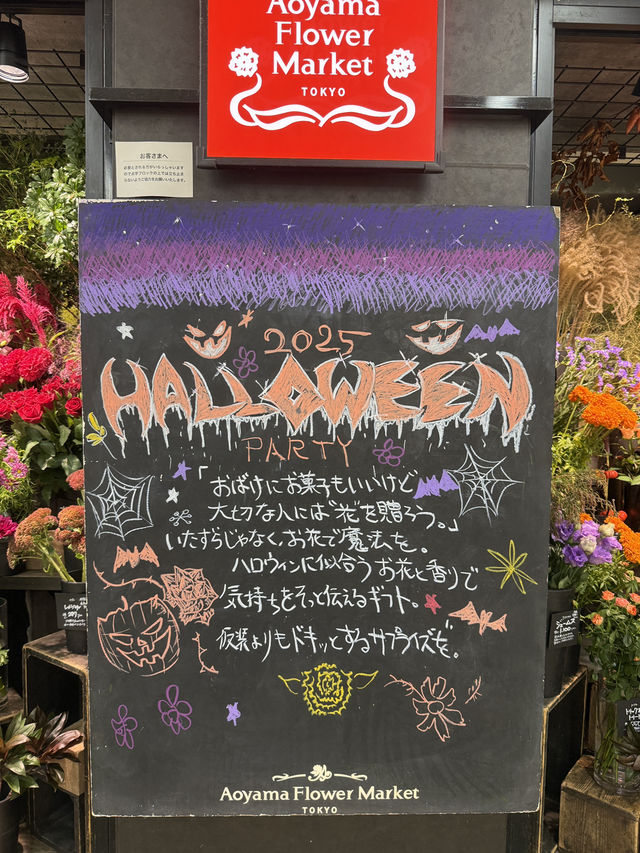 Aoyama
Flower
Market
TOKYO
お客さまへ
2025
HALLOWEEN
PARTY
「おばけにお菓子もいいけど
大切な人には“花”を贈ろう。」
いたずらじゃなく、お花で魔法を。
ハロウィンに似合うお花と香りで
気持ちをそっと伝えるギフト。
仮装よりもドキッとするサプライズを。
Aoyama Flower Market
TOKYO